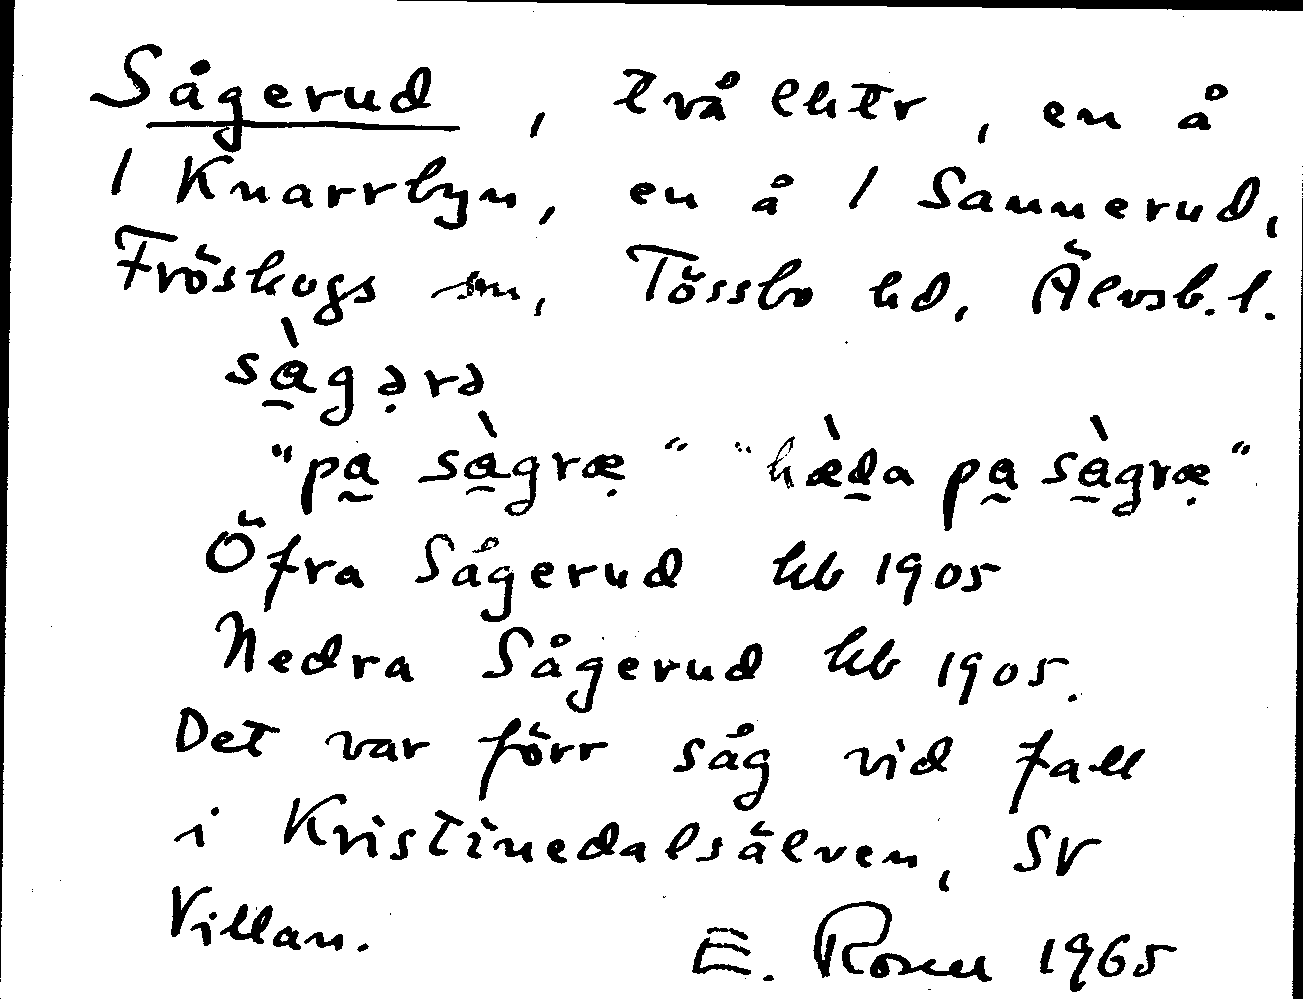 Sågerud, två lhtr, en å
1 Knarrbyn, en å 1 Sannerud,
Fröskogs sn, Tössbo hd, Älvsb. l.
sà̱gə̣rə
"pa̱ sà̱græ̣" "hæ̀d̲a pa̱ sà̱græ̣"
Öfra Sågerud kb 1905
Nedra Sågerud kb 1905.
Det var förr såg vid fall
i Kristinedalsälven, SV
Villan.
E. Rosen 1965